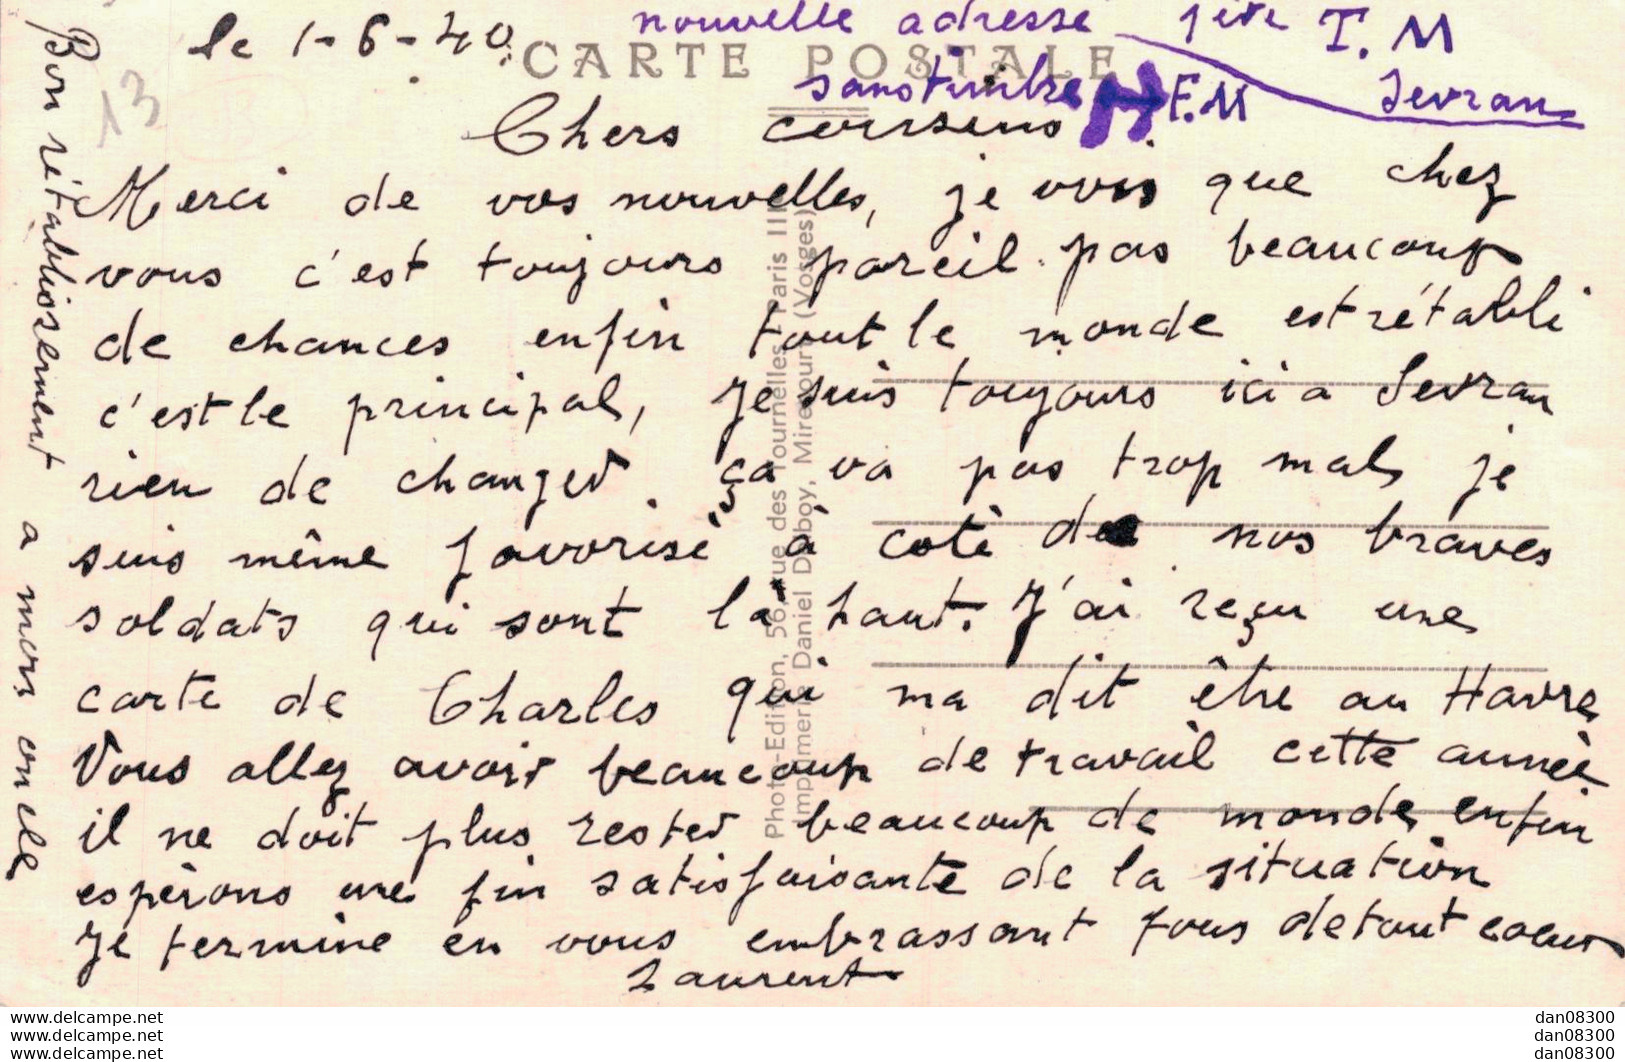 nouvelle adresse 1ère T.M
le 1-6-40
CARTE POSTALE
sans timbre F.M Sevran
13
Chers coussens
Merci de vos nouvelles, je vois que chez
vous c'est toujours pareil pas beaucoup
de chances enfin tout le monde est rétabli
c'est le principal, je suis toujours ici a Sevran
rien de changer. ça va pas trop mal, je
suis même favorisé à coté de nos braves
soldats qui sont là haut. J'ai reçu une
carte de Charles qui ma dit être au Havre
Vous allez avoir beaucoup de travail cette année
il ne doit plus rester beaucoup de monde, enfin
espèrons une fin satisfaisante de la situation
Je termine en vous embrassant tous de tout coeur
Laurent
Bon rétablissement a mon oncle
Photo-Edition, 56, rue des Tournelles, Paris III
Imprimerie Daniel Duboy, Mirecourt (Vosges)
dan08300
dan08300
dan08300
www.delcampe.net
www.delcampe.net
www.delcampe.net